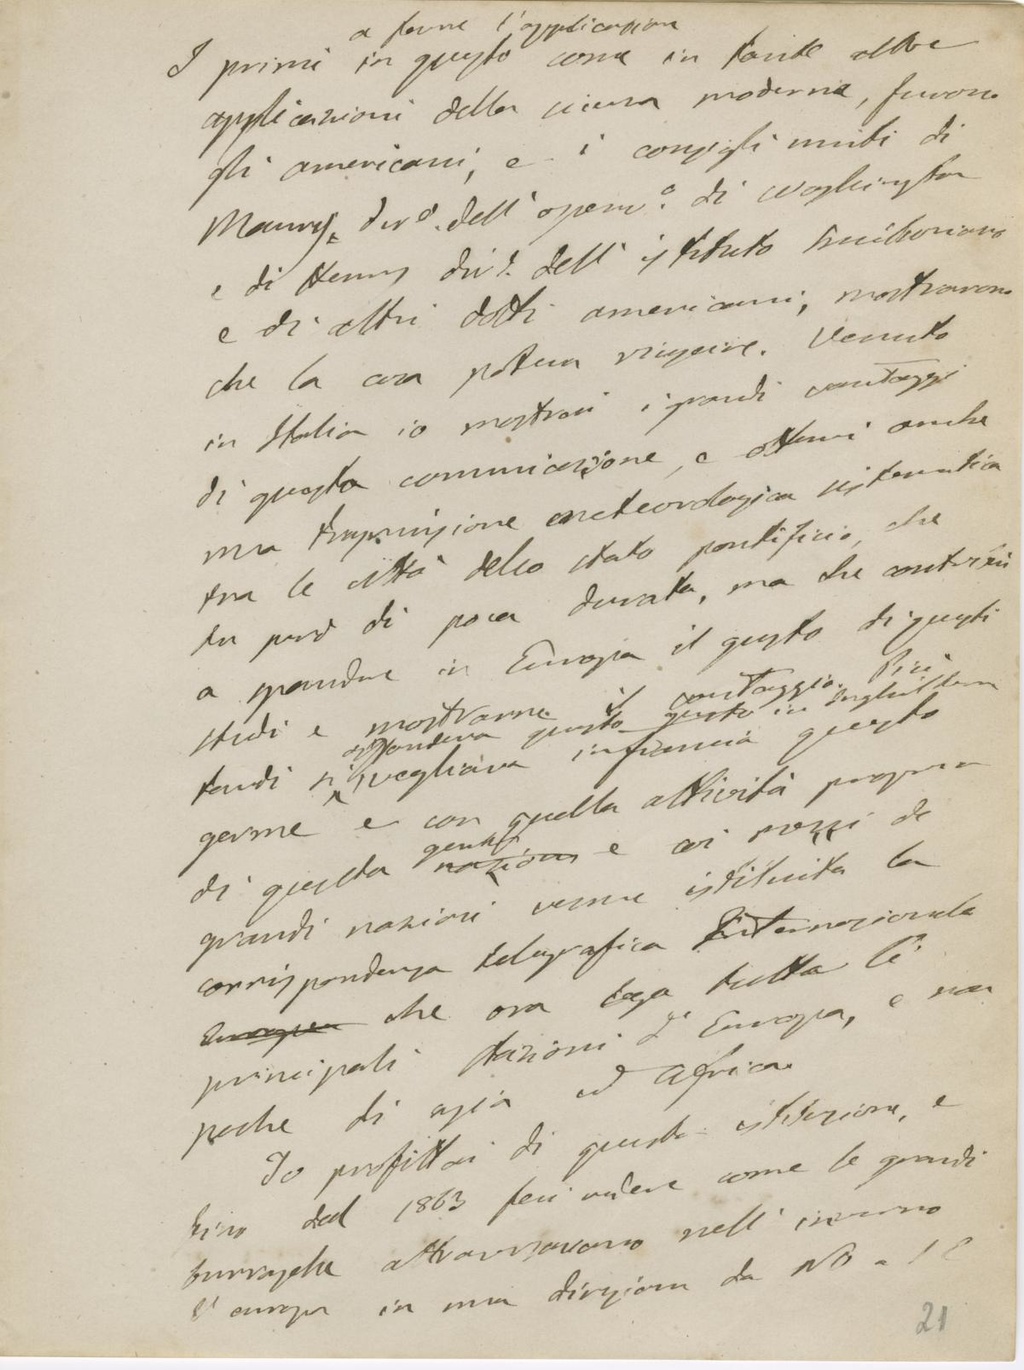 a farne l'applicazione
I primi in questo come in tante altre
applicazioni della scienza moderna, furono
gli americani, e i consigli uniti di
Maury, dir.e dell' osserv.o di Washington
e di Henry dir.e dell' istituto Smithsoniano
e di altri dotti americani, mostrarono
che la cosa poteva riuscire. Venuto
in Italia io mostrai i grandi vantaggi
di questa comunicazione, e ottenni anche
una trasmissione meteorologica sistematica
tra le città dello stato pontificio, che
fu però di poca durata, ma che contribuì
a spandere in Europa il gusto di questi
studi e mostrarne il vantaggio. Più
diffondeva questo gusto in Inghilterra
tardi si svegliava in francia questo
germe e con quella attività propria
genti
di quella nazione e coi mezzi di
grandi nazioni venne istituita la
corrispondenza telegrafica Internazionale
Europea che ora lega tutte le
principali stazioni d' Europa, e non
poche di asia ed Africa.
Io profittai di questa istituzione, e
fino dal 1863 feci vedere come le grandi
burrasche attraversavano nell' inverno
l' europa in una direzione da NO a SE
21